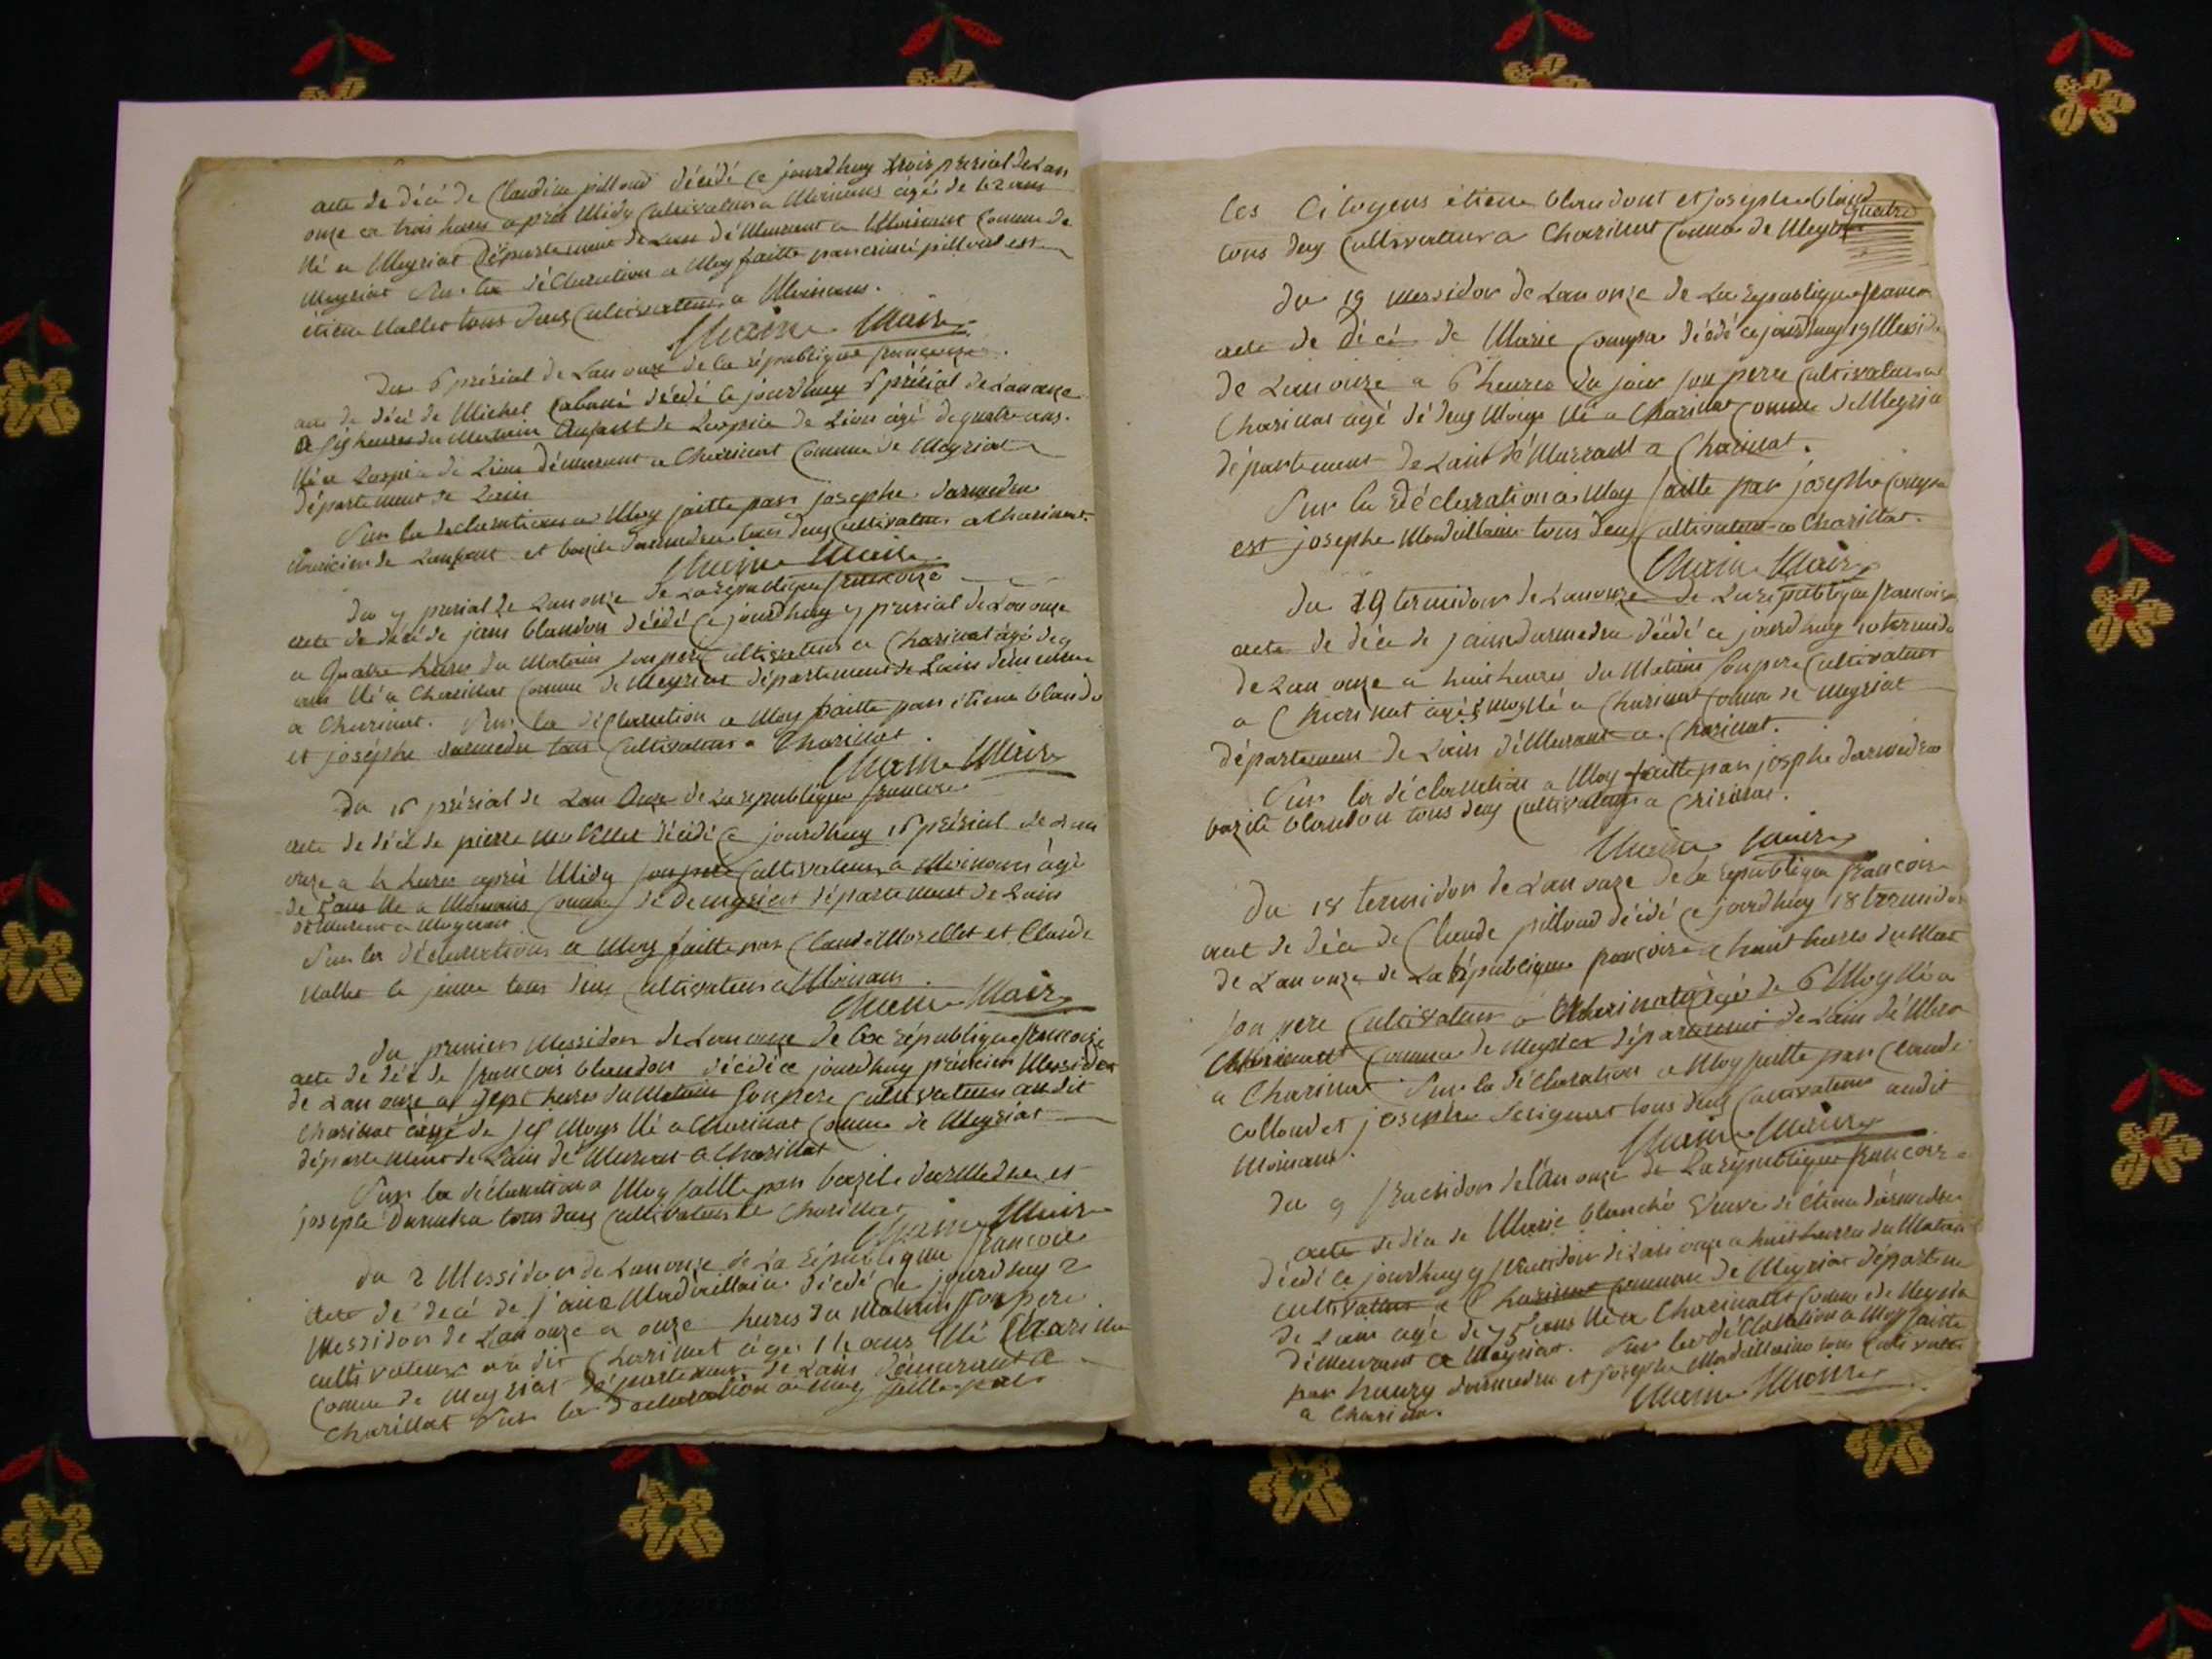 acte de décé de Claudine pilloud décédé ce jourdhuy trois prerial de Lan
onze a trois heures apres Midy Cultivateur a Moinans agé de 62 ans
Né a Meyriat département de Lain démeurant a Moinans Comune de
Meyriat Sur la déClaration a Moy faitte par pilloud est
étiene Nallet tous deus Cultivateurs a Moinans.
Maire
du 6 prérial de Lan onze de la république françoise.
acte de décé de Michel décédé ce jourdhuy 6 prérial de Lan onze
a sis heures du Matain Anfant de Laspice de Lion agé de quatre ans.
Né a Laspice de Lion démeurant a Charinat Comune de Meyriat
département de Lain
Sur la declaration a Moy faitte par josephe darmedru
et bazile darmedru tous deus Cultivateurs a Charinat.
Maire
du 9 prerial de Lan onze de La république francoize
acte de decé de janï blandon décédé ce jourdhuy 9 prerial de Lan onze
a quatre heures du Matain son pere Cultivateur a Charinat agé de 9
ans Né a Charinat Comune de Meyriat département de Lain
a Charinat. Sur la déClaration a Moy faitte par étiene blando
et joséphe darmedru tous Cultivateurs a Charinat.
Maire
du 16 prérial de Lan Onze de La république francoise
acte de décé de pierre décédé ce jourdhuy 16 prérial de Lan
onze a heures après Midy son pere Cultivateur a Moinans agé
de 5 ans Né a Moinans Comune de Meyriat département de Lain
démeurant a Meyriat
Sur la déClaration a Moy faitte par Claude Morellet et Claude
Nallet le jeune tous deus Cultivateurs a Moinans.
Maire
du premier Messidor de Lan onze de La république francoize
acte de décé de françois blandon décédé ce jourdhuy prémier Messidor
de Lan onze a sept heures du Matain son pere Cultivateur au dit
Charinat agé de sis Moys Né a Charinat Comune de Meyriat
département de Lain démeurant a Charinat
Sur la déClaration a Moy faitte par bazile darmedru et
joseple darmedru tous deus Cultivateurs a Charinat
Maire
du 2 Messidor de Lan onze de La république francoise
acte de decé de Madaillain décédé ce jourdhuy 2
Messidor de Lan onze a onze heures du Matain son pere
cultivateur au dit Charinat agé ans Né Charinat
Comune de Meyriat département de Lain démeurant a
Charinat Sur la declaration a Moy faitte par
les Citoyens étiene blandont et josephe
quatre
tous deus Cultivateurs a Charinat Comune de Meyriat
du 19 Messidor de Lan onze de La république
acte de décé de Marie décédé ce jourdhuy 19 Messidor
de Lan onze a 6 heures du jour son pere Cultivateur a
Charinat agé de deus Moys Né a Charinat Comune de Meyria
département de Lain démeurant a Charinat.
Sur la déclaration a Moy faitte par josephe
est josephe Madaillain tous deus Cultivateurs a Charinat.
Maire
du 10 termidor de Lan onze de La république francoise
acte de décé de darmedru décédé ce jourdhuy 10 termido
de Lan onze a huit heures du Matain son pere Cultivateur
a Charinat agé Né a Charinat Comune de Meyriat
département de Lain démeurant a Charinat.
Sur la déclaration a Moy faitte par josphe darmedru
bazile blandon tous deus Cultivateurs a
Maire
du 18 termidor de Lan onze de la république francoise
acte de décé de Claude pilloud décédé ce jourdhuy 18 termidor
de Lan onze de La république françoise a huit heures du Mat
son pere Cultivateur a agé de 6 Moy Né a
Comune de Meyriat département de Lain
a Charinat Sur la déClaration a Moy faitte par Claude
et josephe tous deus Cultivateurs audit
Moinans.
Maire
du 9 fructidor de Lan onze de La république francoise
acte de décé de Marie blanché Veuve de étiene darmedru
décédé ce jourdhuy 9 fructidor de Lan onze a huit heures du Matain
cultivateur a Charinat Comune de Meyriat
de Lain agé de 75 ans Né a Charinat Comune de Meyria
démeurant a Meyriat. Sur la déClaration a Moy faitte
par darmedru et josephe Madaillain tous
a Charina.
Maire